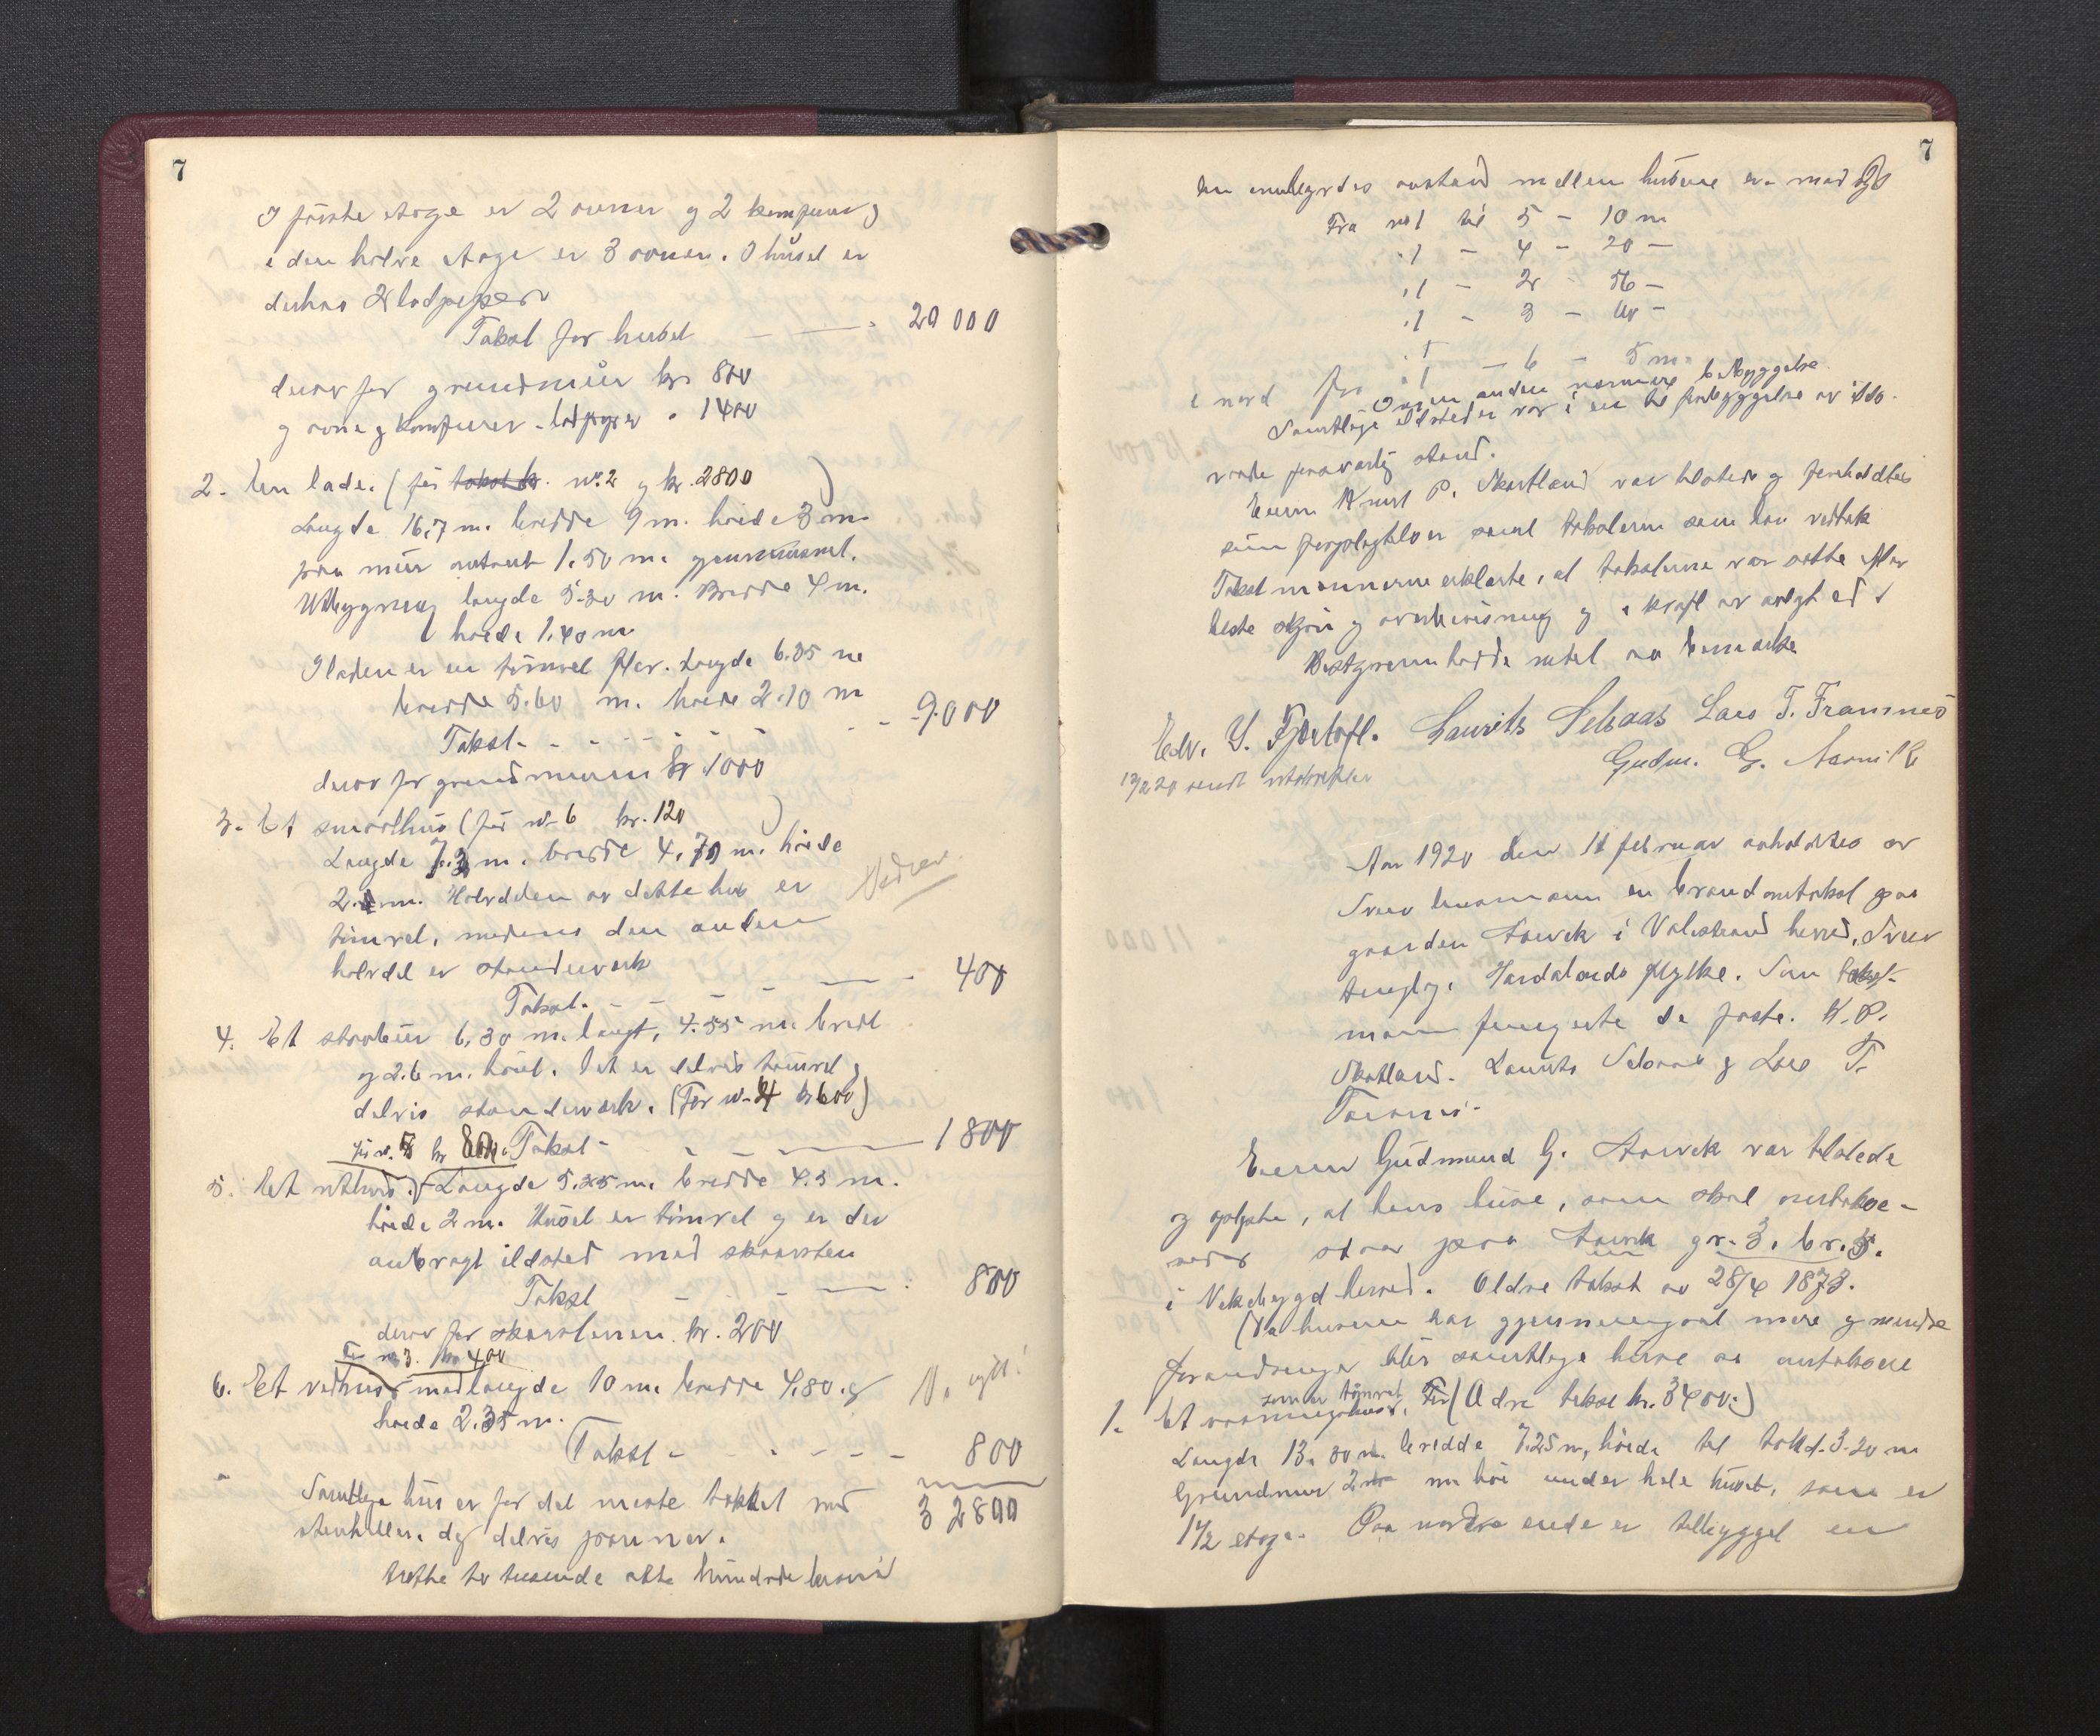 7
I første etage er 2 ovner og 2 komfurer,
i den halve etage er 3 ovner. I huset er
deshas 2 lodpiper
Takst for huset — — 20 000
derav for grundmur kr 800
og ovne og komfurer - lodpiper " 1400
2. En lade. (før takst kr. nr. 2 og kr. 2800)
Længde 16,7 m. bredde 9 m. høide 3 m.
paa mur omtrent 1.50 m. gjennemsnit.
Utbygning længde 5.20 m. Bredde 4 m.
høide 1.40 m
I laden er en tømret flor. Længde 6.35 m
bredde 5.60 m. høide 2.10 m
Takst - - - - - - 9.000
derav for grundmuren kr 1000
3. Et smalhus (før nr. 6 kr. 120)
Længde 7.3 m. bredde 4.70 m. høide
2. m. Halvdelen av dette hus er
tømret, medens den anden
halvdel er standverk
Takst. - - - - 400
4. Et stabur 6,30 m. langt, 4.55 m. bredt
og 2.6 m. høit. Det er delvis tømret og
delvis standverk. (Før nr. 4 kr 600)
Før nr. kr Takst - - - 1800
5. Et uthus. Længde 5.35 m. bredde 4.3 m.
høide 2 m. Huset er tømret og er der
anbragt ildsted med skorsten
Takst - - - 800
derav for skorstenen kr. 200
Før nr 3. kr 400
6. Et vedhus med længde 10 m. bredde 4,80 og
høide 2.35 m.
Takst - - - - - 800
32800
Samtlige hus er for det meste tækket med
stenheller og delvis panner.
tretto to tusende otte hundrede kroner
7
Den indbyrdes avstand mellem husene er med
Fra nr 1 til 5 - 10 m
" 1 - 4 - 20 -
" 1 - 2 - 56 -
" 1 - 3 -
" 1 - 6 - 5 m.
i nord fra Ingen anden nærmere bebyggelse.
Samtlige ildsteder var i en til forebyggelse av ilds-
vaade forsvarlig stand.
Eieren Knut P. Skotland var tilstede og foreholdtes
sin samt taksterne som han vedtok
Takstmennene erklærte, at taksterne var satte efter
beste skjøn og overbevisning og i kraft av avlagt ed.
Bestyreren hadde intet at bemærke
Edv. Y. Fjørtoft. Laurits Sebøas Lars T. Framnes
Gudm. G. Aarvik
12/2 20 sendt utskrifter
Aar 1920 den 11 februar avholdtes av
lensmann en brandomtakst paa
gaarden Aarvik i Valestrand herred, Sven
tinglag, Hardalands fylke. Som takst-
menn fungerte de faste. K. P.
Skotland. Laurits Sebøas og Lars T.
Eieren Gudmund G. Aarvik var tilstede
og oplyste, at hans huse, som skal omtakse-
res staar paa Aarvik gr. 3. br. 5.
i Vikebygd herred. Eldre takst av 28/4 1873.
(Da husene har gjennemgaat mere og mindre
forandringer blir samtlige huse at omtaksere
som er tømret
1. Et vaaningshus. Før (Eldre takst kr. 3400.)
Længde 13.30 m. bredde 7.25 m, høide til tak d. 3.20 m
Grundmur 2 m høi under hele huset, som er
1 1/2 etage. Paa nordre ende er tilbygget en